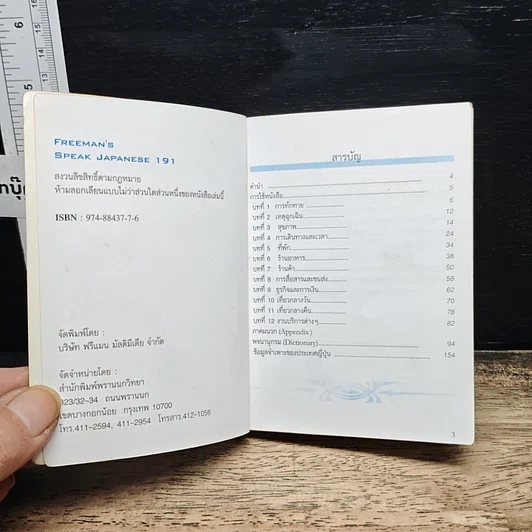 6
5
FREEMAN'S
SPEAK JAPANESE 191
สงวนลิขสิทธิ์ตามกฎหมาย
ห้ามลอกเลียนแบบไม่ว่าส่วนใดส่วนหนึ่งของหนังสือเล่มนี้
ISBN : 974-88437-7-6
จัดพิมพ์โดย :
บริษัท ฟรีแมน มัลติมีเดีย จำกัด
จัดจำหน่ายโดย :
สำนักพิมพ์พรานนกวิทยา
323/32-34 ถนนพรานนก
เขตบางกอกน้อย กรุงเทพ 10700
โทร.411-2594, 411-2954 โทรสาร.412-1056
สารบัญ
คำนำ 4
การใช้หนังสือ 5
บทที่ 1 การทักทาย 6
บทที่ 2 เหตุฉุกเฉิน 12
บทที่ 3 สุขภาพ 14
บทที่ 4 การเดินทางและเวลา 24
บทที่ 5 ที่พัก 34
บทที่ 6 ร้านอาหาร 38
บทที่ 7 ร้านค้า 50
บทที่ 8 การสื่อสารและขนส่ง 58
บทที่ 9 ธุรกิจและการเงิน 62
บทที่ 10 เที่ยวกลางวัน 70
บทที่ 11 เที่ยวกลางคืน 78
บทที่ 12 งานบริการต่างๆ 82
ภาคผนวก (Appendix)
พจนานุกรม (Dictionary) 94
ข้อมูลจำเพาะของประเทศญี่ปุ่น 154
3